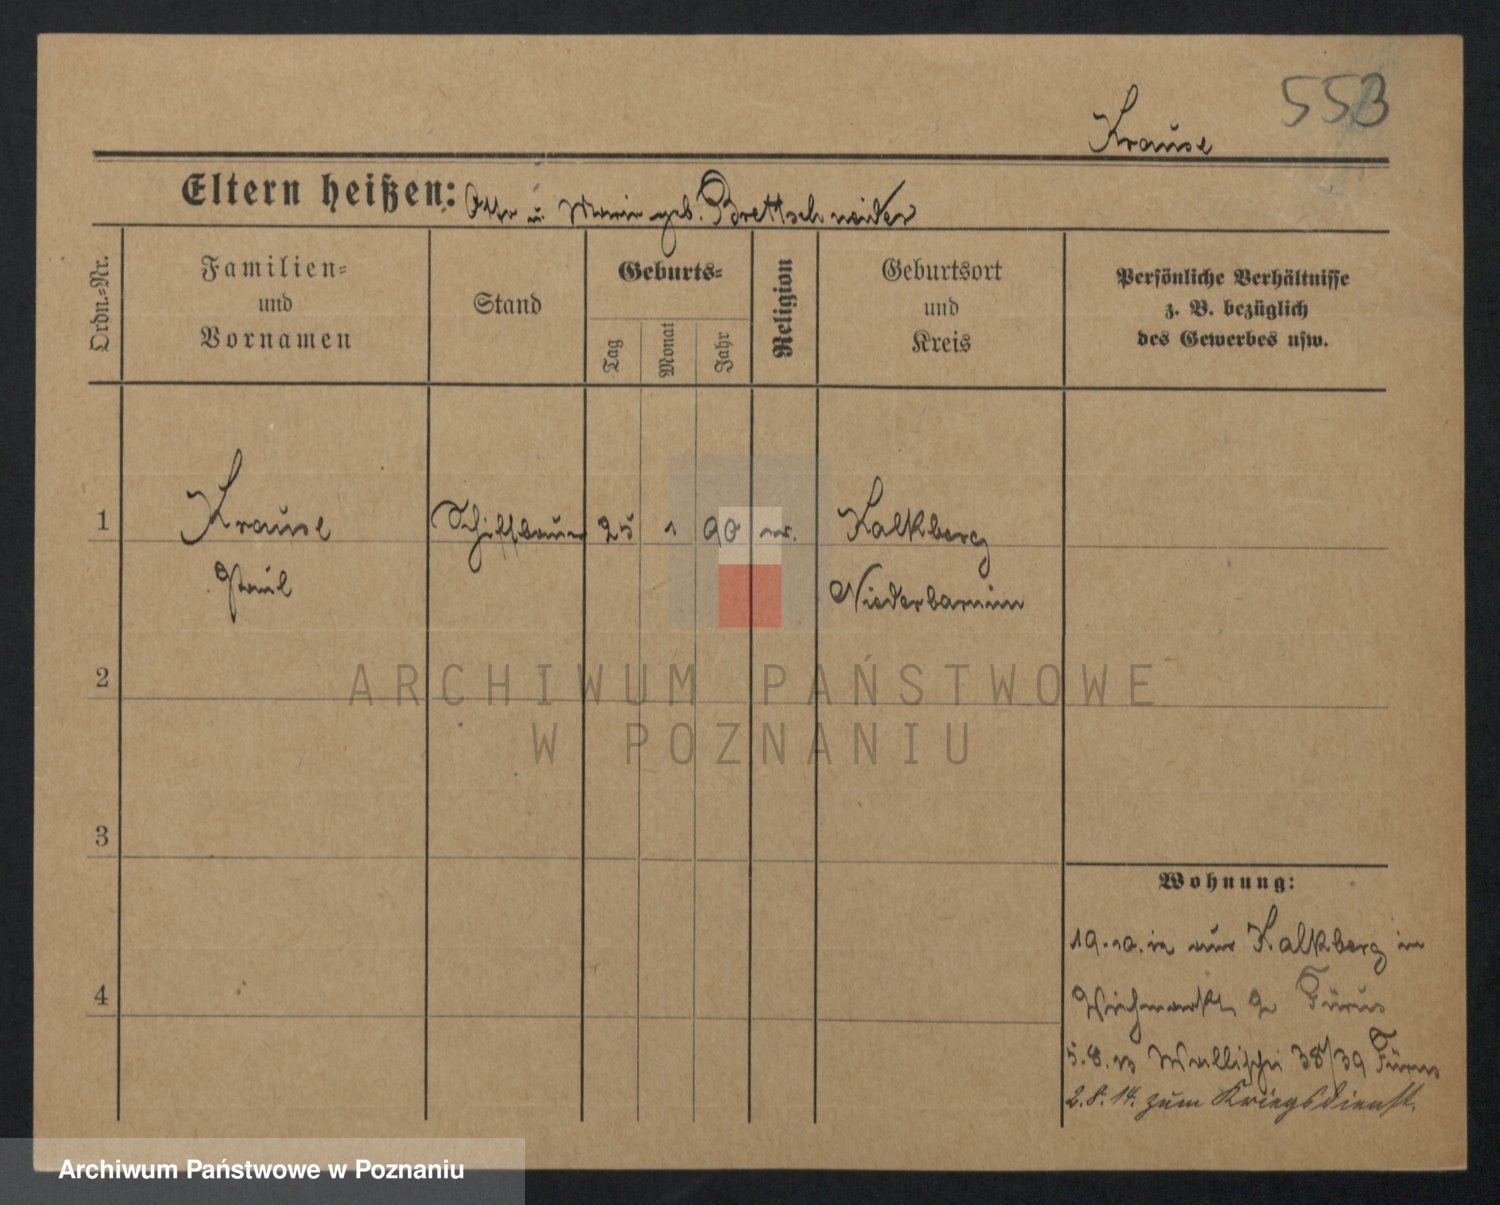 553
Krause
Eltern heißen: Otto u. Marie geb. Brettschneider
Ordn.-Nr.
Familien-
und
Vornamen
Stand
Geburts-
Tag
Monat
Jahr
Religion
Geburtsort
und
Kreis
Persönliche Verhältnisse
z. B. bezüglich
des Gewerbes usw.
1 Krause Schiffbauer 25 1 90 ev. Kalkberg
Paul Niederbarnim
2
ARCHIWUM PAŃSTWOWE
W POZNANIU
3
Wohnung:
19.10.12 aus Kalkberg in
4
2
5.8.13 Wallischei 38/39
2.8.14. zum Kriegsdienst.
Archiwum Państwowe w Poznaniu